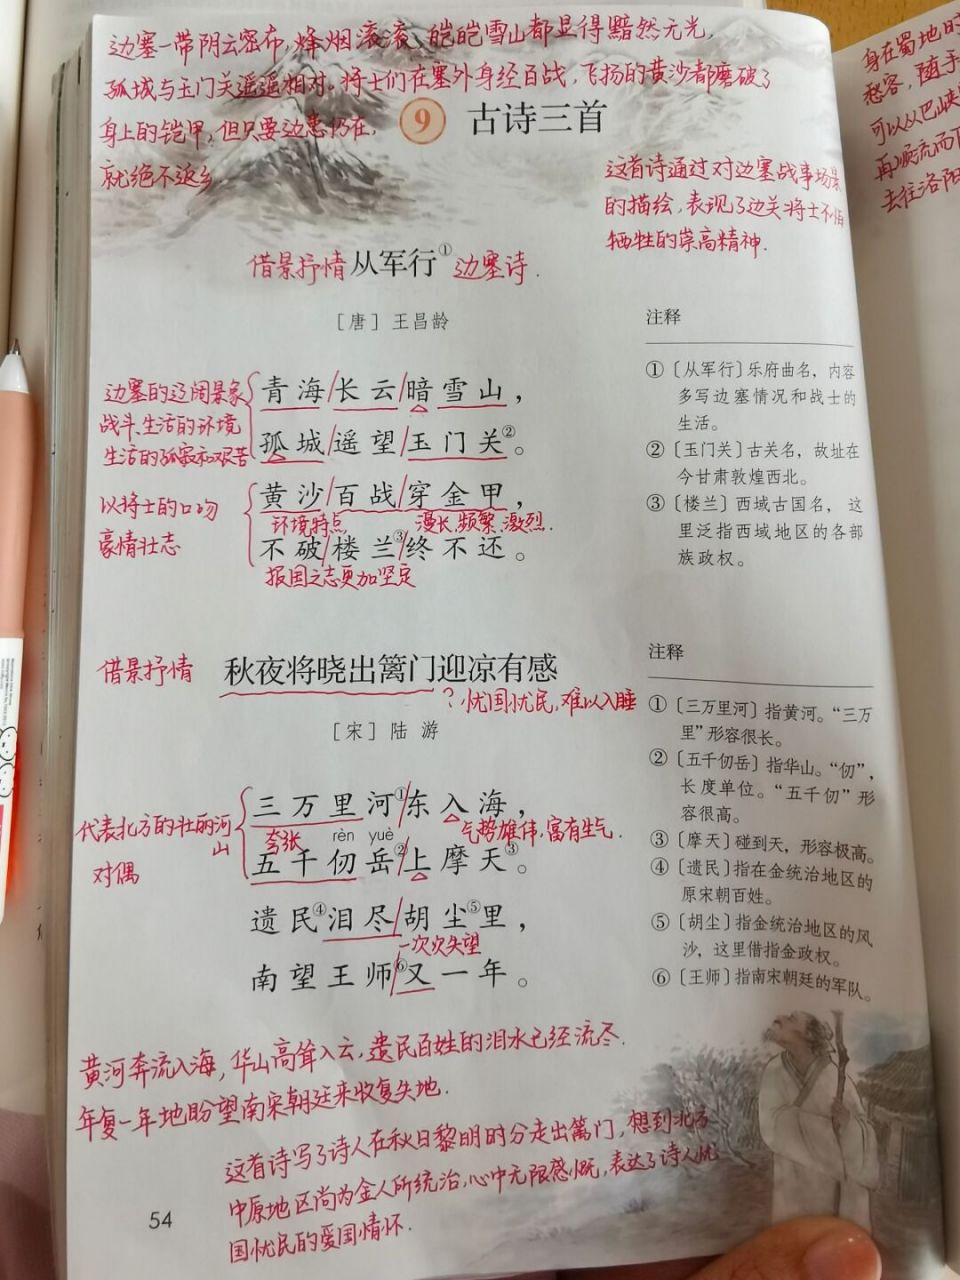 边塞一带阴云密布,烽烟滚滚,皑皑雪山都显得黯然无光,
孤城与玉门关遥遥相对。将士们在塞外身经百战,飞扬的黄沙都磨破了
身上的铠甲,但只要边患仍在,
就绝不返乡
9 古诗三首
这首诗通过对边塞战事场景
的描绘,表现了边关将士不怕
牺牲的崇高精神.
借景抒情 从军行① 边塞诗.
[唐] 王昌龄
边塞的辽阔景象
战斗、生活的环境
生活的孤寂和艰苦
青海/长云/暗雪山,
孤城/遥望/玉门关②。
以将士的口吻
豪情壮志
黄沙/百战/穿金甲,
环境特点 漫长、频繁、激烈.
不破/楼兰③/终不还。
报国之志更加坚定
注释
①〔从军行〕乐府曲名,内容
多写边塞情况和战士的
生活。
②〔玉门关〕古关名,故址在
今甘肃敦煌西北。
③〔楼兰〕西域古国名,这
里泛指西域地区的各部
族政权。
借景抒情 秋夜将晓出篱门迎凉有感
?忧国忧民,难以入睡
[宋] 陆 游
代表北方的壮丽河
山
对偶
三万里河①/东入海,
夸张 rèn yuè 气势雄伟,富有生气.
五千仞岳②/上摩天③。
遗民④泪尽/胡尘⑤里,
一次次失望
南望王师⑥/又一年。
注释
①〔三万里河〕指黄河。“三万
里”形容很长。
②〔五千仞岳〕指华山。“仞”,
长度单位。“五千仞”形
容很高。
③〔摩天〕碰到天,形容极高。
④〔遗民〕指在金统治地区的
原宋朝百姓。
⑤〔胡尘〕指金统治地区的风
沙,这里借指金政权。
⑥〔王师〕指南宋朝廷的军队。
黄河奔流入海,华山高耸入云,遗民百姓的泪水已经流尽.
年复一年地盼望南宋朝廷来收复失地.
这首诗写了诗人在秋日黎明时分走出篱门,想到北方
中原地区尚为金人所统治,心中无限感慨,表达了诗人忧
国忧民的爱国情怀.
54
身在蜀地的
愁容,随手
可以从巴峡
再顺流而下
去往洛阳